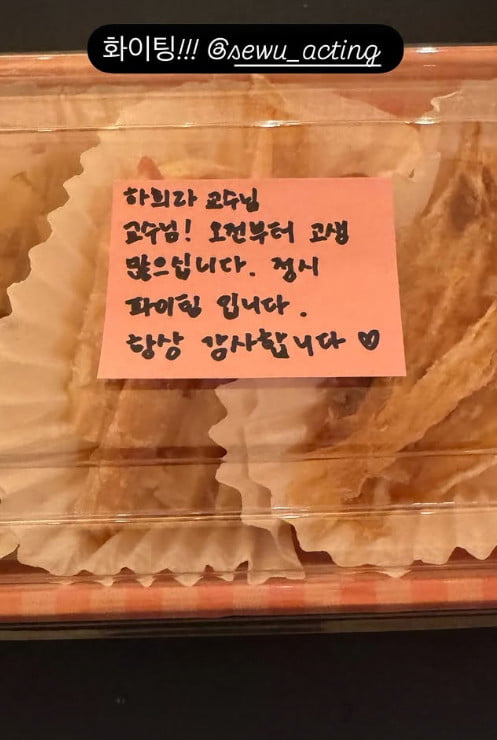 화이팅!!! @sewu_acting
하희라 교수님
교수님! 오전부터 고생
많으십니다. 정시
파이팅 입니다.
항상 감사합니다 ♡